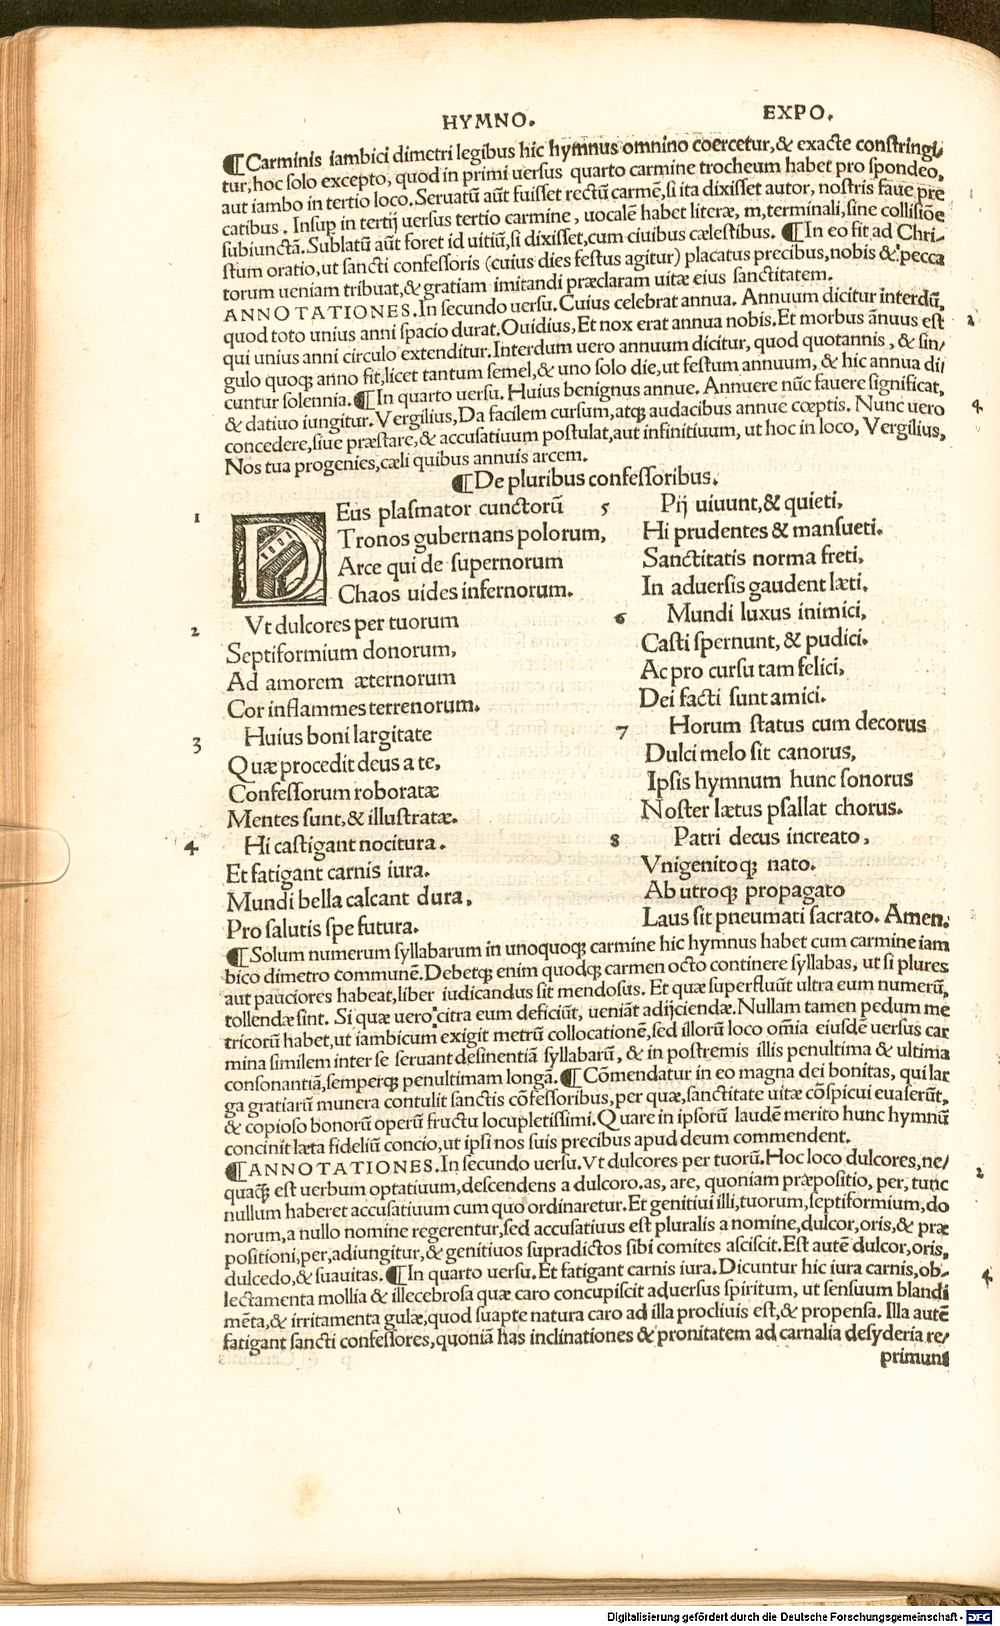 HYMNO. EXPO.
¶Carminis iambici dimetri legibus hic hymnus omnino coercetur,& exacte constringi/
tur,hoc solo excepto, quod in primi uersus quarto carmine trocheum habet pro spondeo,
aut iambo in tertio loco.Seruatū aūt fuisset rectū carmē,si ita dixisset autor, nostris faue pre
catibus. Insup in tertij uersus tertio carmine, uocalē habet literæ, m,terminali,sine collisiōe
subiunctā.Sublatū aūt foret id uitiū,si dixisset,cum ciuibus cælestibus. ¶In eo fit ad Chri-
stum oratio,ut sancti confessoris (cuius dies festus agitur) placatus precibus,nobis & pecca
torum ueniam tribuat,& gratiam imitandi præclaram uitæ eius sanctitatem.
ANNOTATIONES.In secundo uersu.Cuius celebrat annua. Annuum dicitur interdū,
quod toto unius anni spacio durat.Ouidius,Et nox erat annua nobis.Et morbus ānuus est 2
qui unius anni circulo extenditur.Interdum uero annuum dicitur, quod quotannis, & sin/
gulo quoq; anno fit,licet tantum semel,& uno solo die,ut festum annuum, & hic annua di/
cuntur solennia.¶In quarto uersu. Huius benignus annue. Annuere nūc fauere significat,
& datiuo iungitur. Vergilius,Da facilem cursum,atq; audacibus annue cœptis. Nunc uero 4
concedere,siue præstare,& accusatiuum postulat,aut infinitiuum, ut hoc in loco, Vergilius,
Nos tua progenies,cæli quibus annuis arcem.
¶De pluribus confessoribus.
1 DEus plasmator cunctorū
Tronos gubernans polorum,
Arce qui de supernorum
Chaos uides infernorum.
2 Vt dulcores per tuorum
Septiformium donorum,
Ad amorem æternorum
Cor inflammes terrenorum.
3 Huius boni largitate
Quæ procedit deus a te,
Confessorum roboratæ
Mentes sunt,& illustratæ.
4 Hi castigant nocitura.
Et fatigant carnis iura.
Mundi bella calcant dura,
Pro salutis spe futura.
5 Pij uiuunt,& quieti,
Hi prudentes & mansueti.
Sanctitatis norma freti,
In aduersis gaudent læti.
6 Mundi luxus inimici,
Casti spernunt, & pudici.
Ac pro cursu tam felici,
Dei facti sunt amici.
7 Horum status cum decorus
Dulci melo sit canorus,
Ipsis hymnum hunc sonorus
Noster lætus psallat chorus.
8 Patri decus increato,
Vnigenitoq; nato.
Ab utroq; propagato
Laus sit pneumati sacrato. Amen.
¶Solum numerum syllabarum in unoquoq; carmine hic hymnus habet cum carmine iam
bico dimetro communē.Debetq; enim quodq; carmen octo continere syllabas, ut si plures
aut pauciores habeat,liber iudicandus sit mendosus. Et quæ superfluūt ultra eum numerū,
tollendæ sint. Si quæ uero citra eum deficiūt, ueniāt adijciendæ.Nullam tamen pedum me
tricorū habet,ut iambicum exigit metrū collocationē,sed illorū loco oīa eiusdē uersus car
mina similem inter se seruant desinentiā syllabarū, & in postremis illis penultima & ultima
consonantiā,semperq; penultimam longā.¶Cōmendatur in eo magna dei bonitas, qui lar
ga gratiarū munera contulit sanctis cōfessoribus,per quæ,sanctitate uitæ cōspicui euaserūt,
& copioso bonorū operū fructu locupletissimi.Quare in ipsorū laudē merito hunc hymnū
concinit læta fideliū concio,ut ipsi nos suis precibus apud deum commendent.
¶ANNOTATIONES.In secundo uersu.Vt dulcores per tuorū.Hoc loco dulcores,ne/
quaq̃ est uerbum optatiuum,descendens a dulcoro.as, are, quoniam præpositio, per, tunc 2
nullum haberet accusatiuum cum quo ordinaretur.Et genitiui illi,tuorum,septiformium,do
norum,a nullo nomine regerentur,sed accusatiuus est pluralis a nomine,dulcor,oris,& præ
positioni,per,adiungitur,& genitiuos supradictos sibi comites asciscit.Est autē dulcor,oris,
dulcedo,& suauitas.¶In quarto uersu.Et fatigant carnis iura.Dicuntur hic iura carnis,ob- 4
lectamenta mollia & illecebrosa quæ caro concupiscit aduersus spiritum, ut sensuum blandi
mēta,& irritamenta gulæ,quod suapte natura caro ad illa procliuis est,& propensa. Illa autē
fatigant sancti confessores,quoniā has inclinationes & pronitatem ad carnalia desyderia re/
primunt
Digitalisierung gefördert durch die Deutsche Forschungsgemeinschaft - DFG